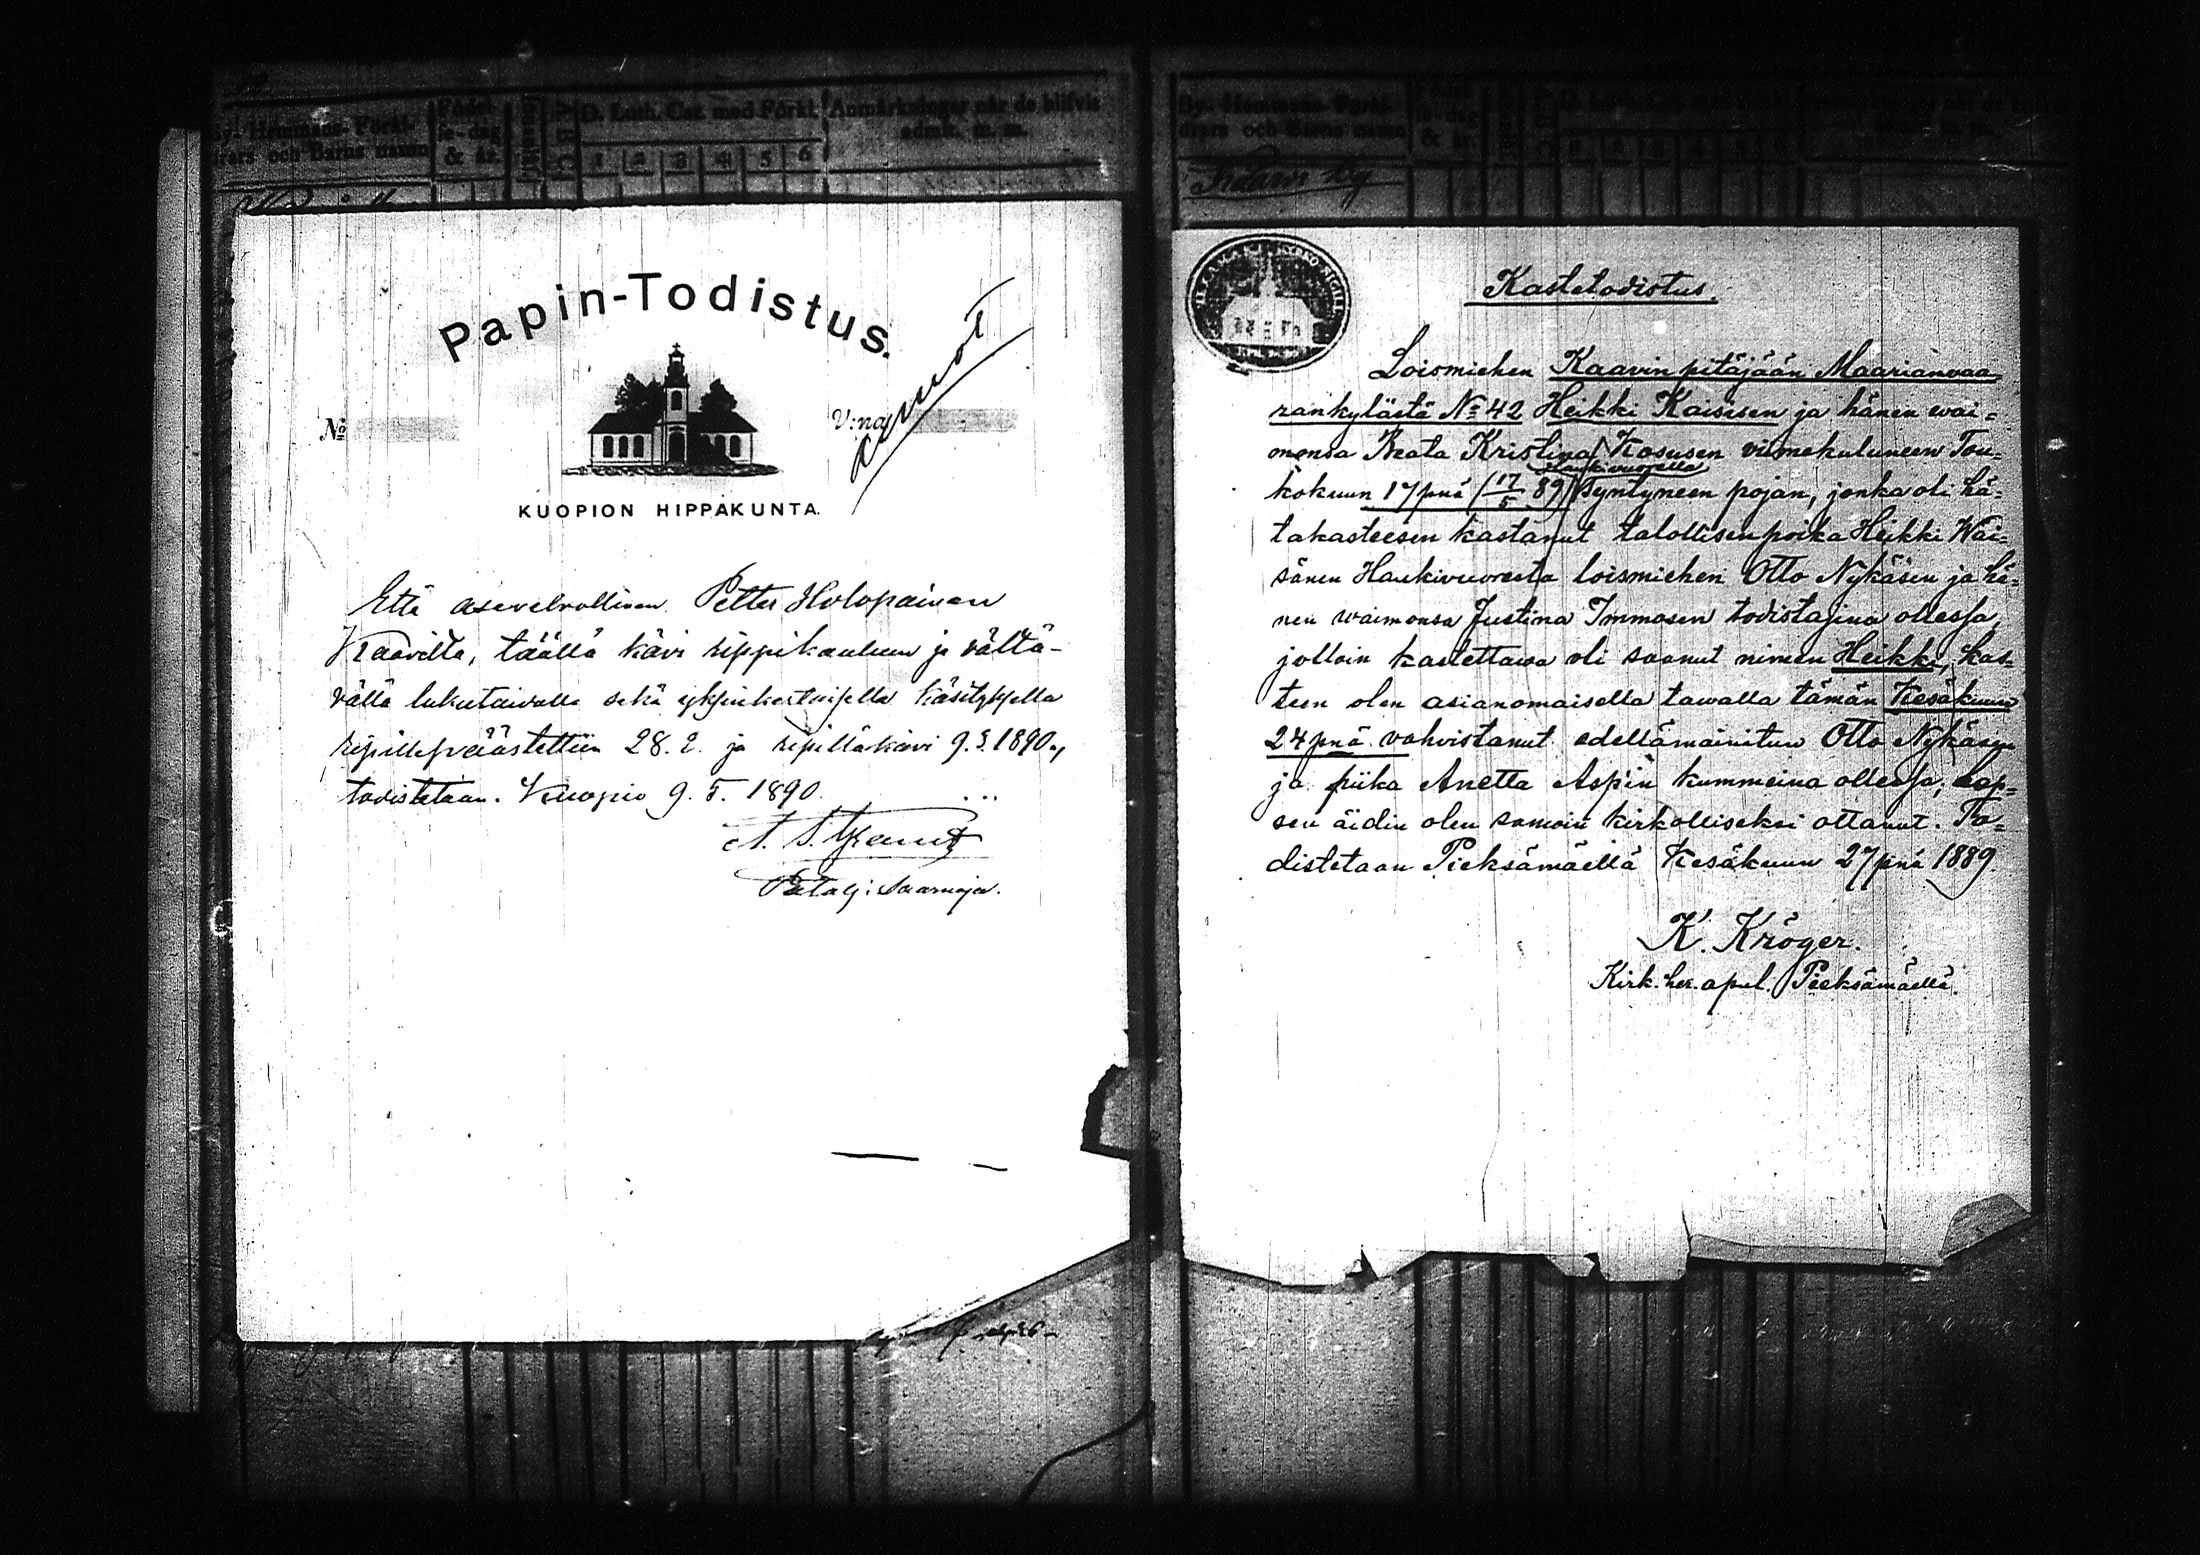 By- Hemmans- Förkl-
drars och Barns namn
Födel-
se-dag
& år.
A B C
D. Luth. Cat. med Förkl.
1 2 3 4 5 6
Anmärkningar når de blifvit
admit. m. m.
Papin-Todistus.
№
V:na
KUOPION HIPPAKUNTA.
Että asevelvollinen Petter Holopainen
Kaavilta, täällä kävi rippikoulun ja vältä-
vällä lukutaidolla sekä yksinkertaisella käsityksellä
ripillepäästettiin 28.2. ja ripilläkävi 9.3.1890,
todistetaan. Kuopio 9.5.1890.
By- Hemmans- Förkl-
drars och Barns namn
Kastetodistus.
Loismiehen Kaavin pitäjään Maarianvaa-
rankylästä № 42 Heikki Kaisisen ja hänen wai-
monsa Beata Kristina Kososen viimekuluneen Tou-
Haukivuorella
kokuun 17 pnä (17/5 89) syntyneen pojan, jonka oli hä-
takasteesen kastanut talollisen poika Heikki Wäi-
sänen Haukivuoresta loismiehen Otto Nykäsen ja hä-
nen waimonsa Justina Immosen todistajina ollessa,
jolloin kastettawa oli saanut nimen Heikki, kas-
teen olen asianomaisella tawalla tämän Kesäkuun
24 pnä vahvistanut edellämainitun Otto Nykäsen
ja piika Anetta Aspin kummeina ollessa; lap-
sen äidin olen samoin kirkolliseksi ottanut. To-
distetaan Pieksämäellä Kesäkuun 27 pnä 1889.
K. Kröger.
Kirk. her. apul. Pieksämäellä.